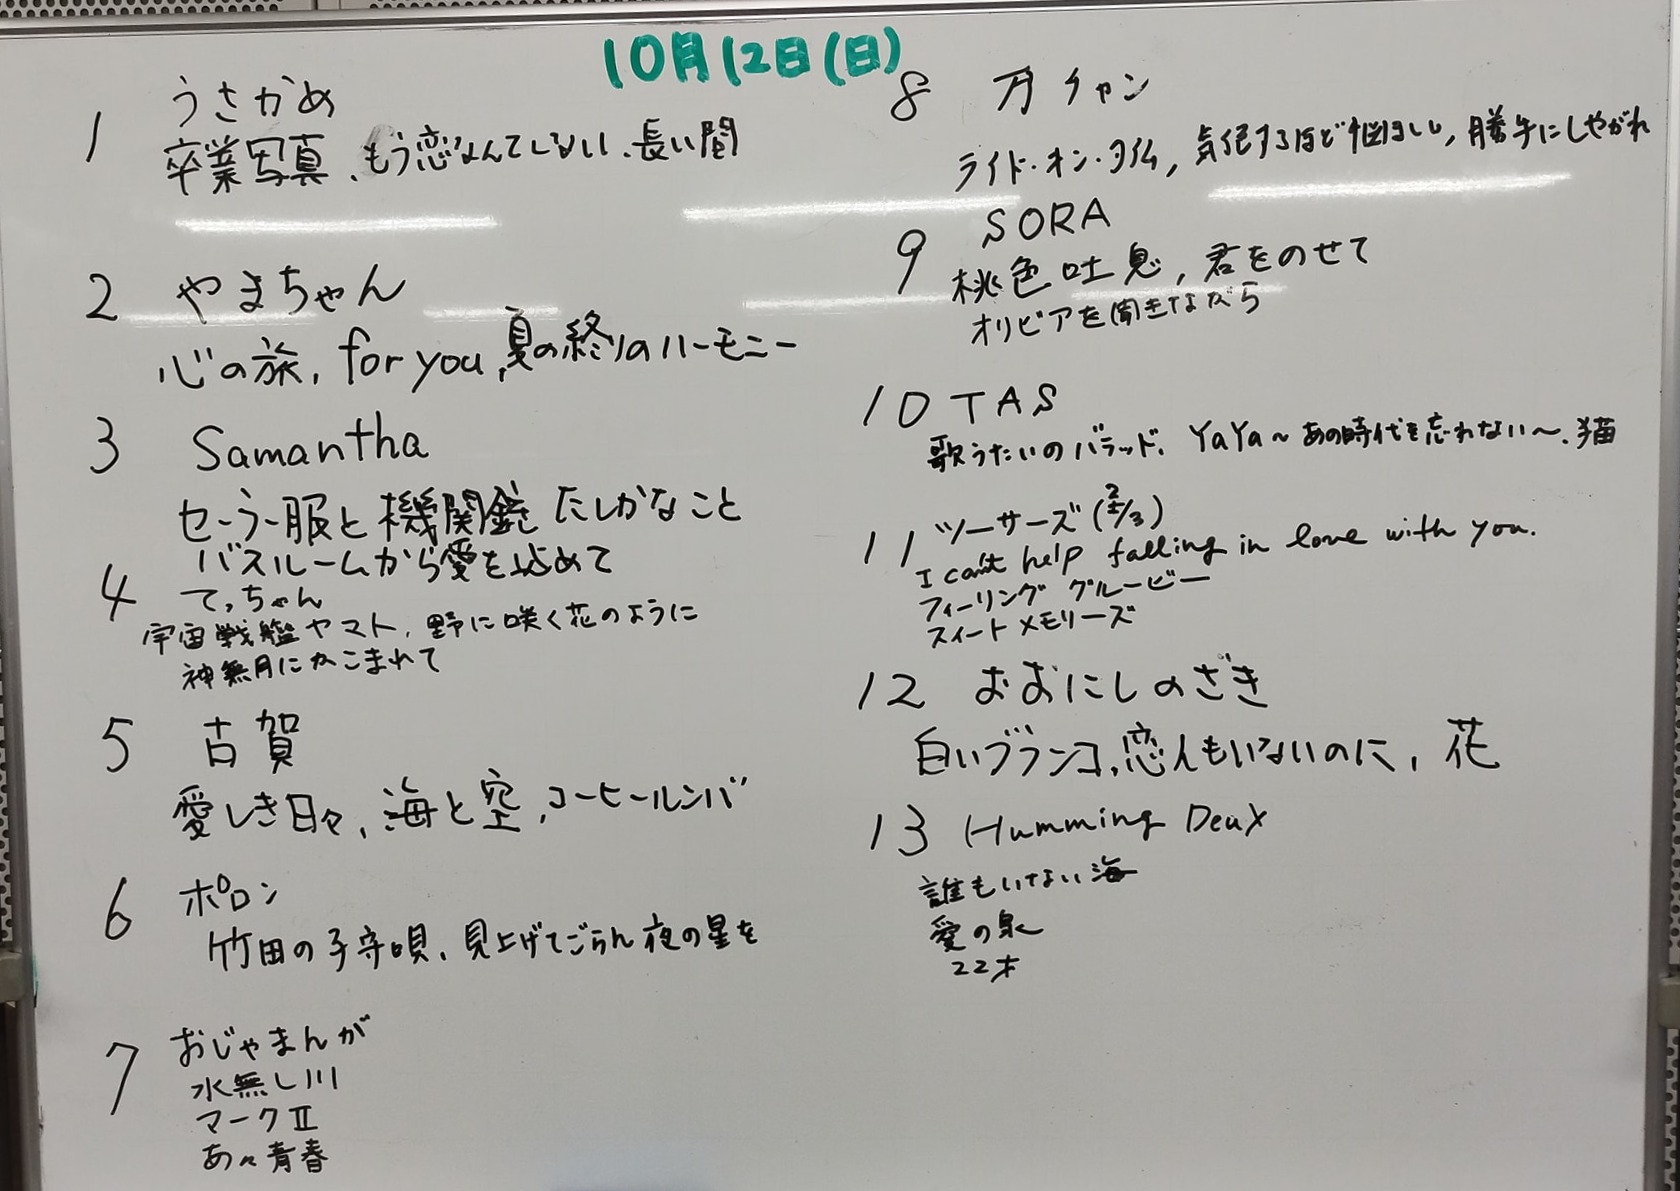 10月12日(日)
1 うさかめ
卒業写真、もう恋なんてしない、長い間
2 やまちゃん
心の旅, for you, 夏の終りのハーモニー
3 Samantha
セーラー服と機関銃 たしかなこと
バスルームから愛を込めて
4 てっちゃん
宇宙戦艦ヤマト, 野に咲く花のように
神無月にかこまれて
5 古賀
愛しき日々, 海と空, コーヒールンバ
6 ポロン
竹田の子守唄, 見上げてごらん夜の星を
7 おじゃまんが
水無し川
マークⅡ
あゝ青春
8 万チャン
ライド・オン・タイム, 気絶するほど悩ましい, 勝手にしやがれ
9 SORA
桃色吐息, 君をのせて
オリビアを聞きながら
10 TAS
歌うたいのバラッド、YaYa〜あの時代を忘れない〜、猫
11 ツーサーズ(2/3)
I can't help falling in love with you.
フィーリング グルービー
スィート メモリーズ
12 おおにしのざき
白いブランコ, 恋人もいないのに, 花
13 Humming Deux
誰もいない海
愛の泉
22才